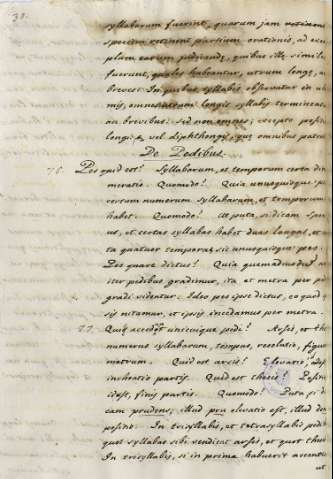 38.
syllabarum fuerint, quarum jam retinen
speciem retinent partium orationis, ad exe
plum earum judicandæ, quibus illæ simile
fuerunt, quales habeantur, utrum longæ, a
breves. In quibus syllabis observatur in ul
mis, omnes autem longis syllabis terminent
an brevibus? Sed non omnes; excepta posit
longi, vel diphthongis, quæ omnibus patet
De Pedibus.
76. Pes quid est? Syllabarum, et temporum certa din
meratio. Quomodo? Quia unusquisque p
certum numerum syllabarum, et temporum
habet. Quomodo? At puta, si dicam
us, et certas syllabas habet duas longas, et
ta quatuor tempora; sic unusquisque pes.
Pes quare dictus? Quia quemadmodum
iter pedibus gradimur, ita et metra per p
gradi videntur: Ideo pes ipse dictus, eo quod p
sis nitamur, et ipsis incedamus per metra.
77. Quæ accidunt unicuique pedi? Arsis, et the
numerus syllabarum, tempus, resolutio, figu
metrum. Quid est arsis? Elevatio,
inchoatio partis. Quid est thesis? Positi
idest, finis partis. Quomodo? Puta si di
cam prudens; illud pru elevatio est, illud den
positio. In trisyllabis, et tetrasyllabis pedi
quot syllabas sibi vendicat arsis, et quot thesi
In trisyllabis, si in prima habuerit accentu
ut